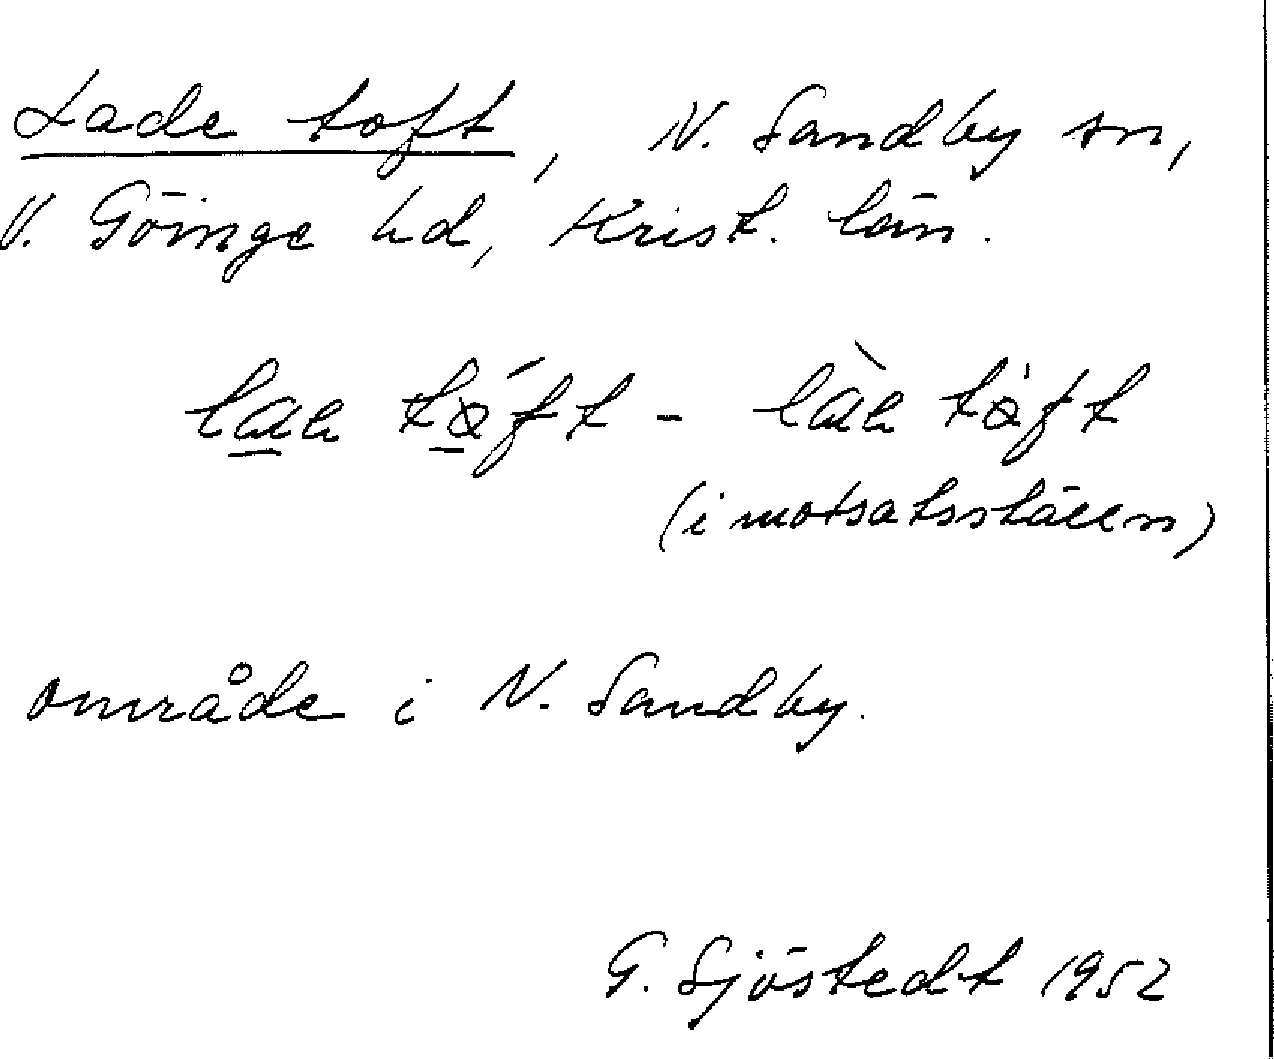 Lade toft, N. Sandby sn,
V. Göinge hd, Krist. län.
(i motsatsställn)
område i N. Sandby.
G. Sjöstedt 1952